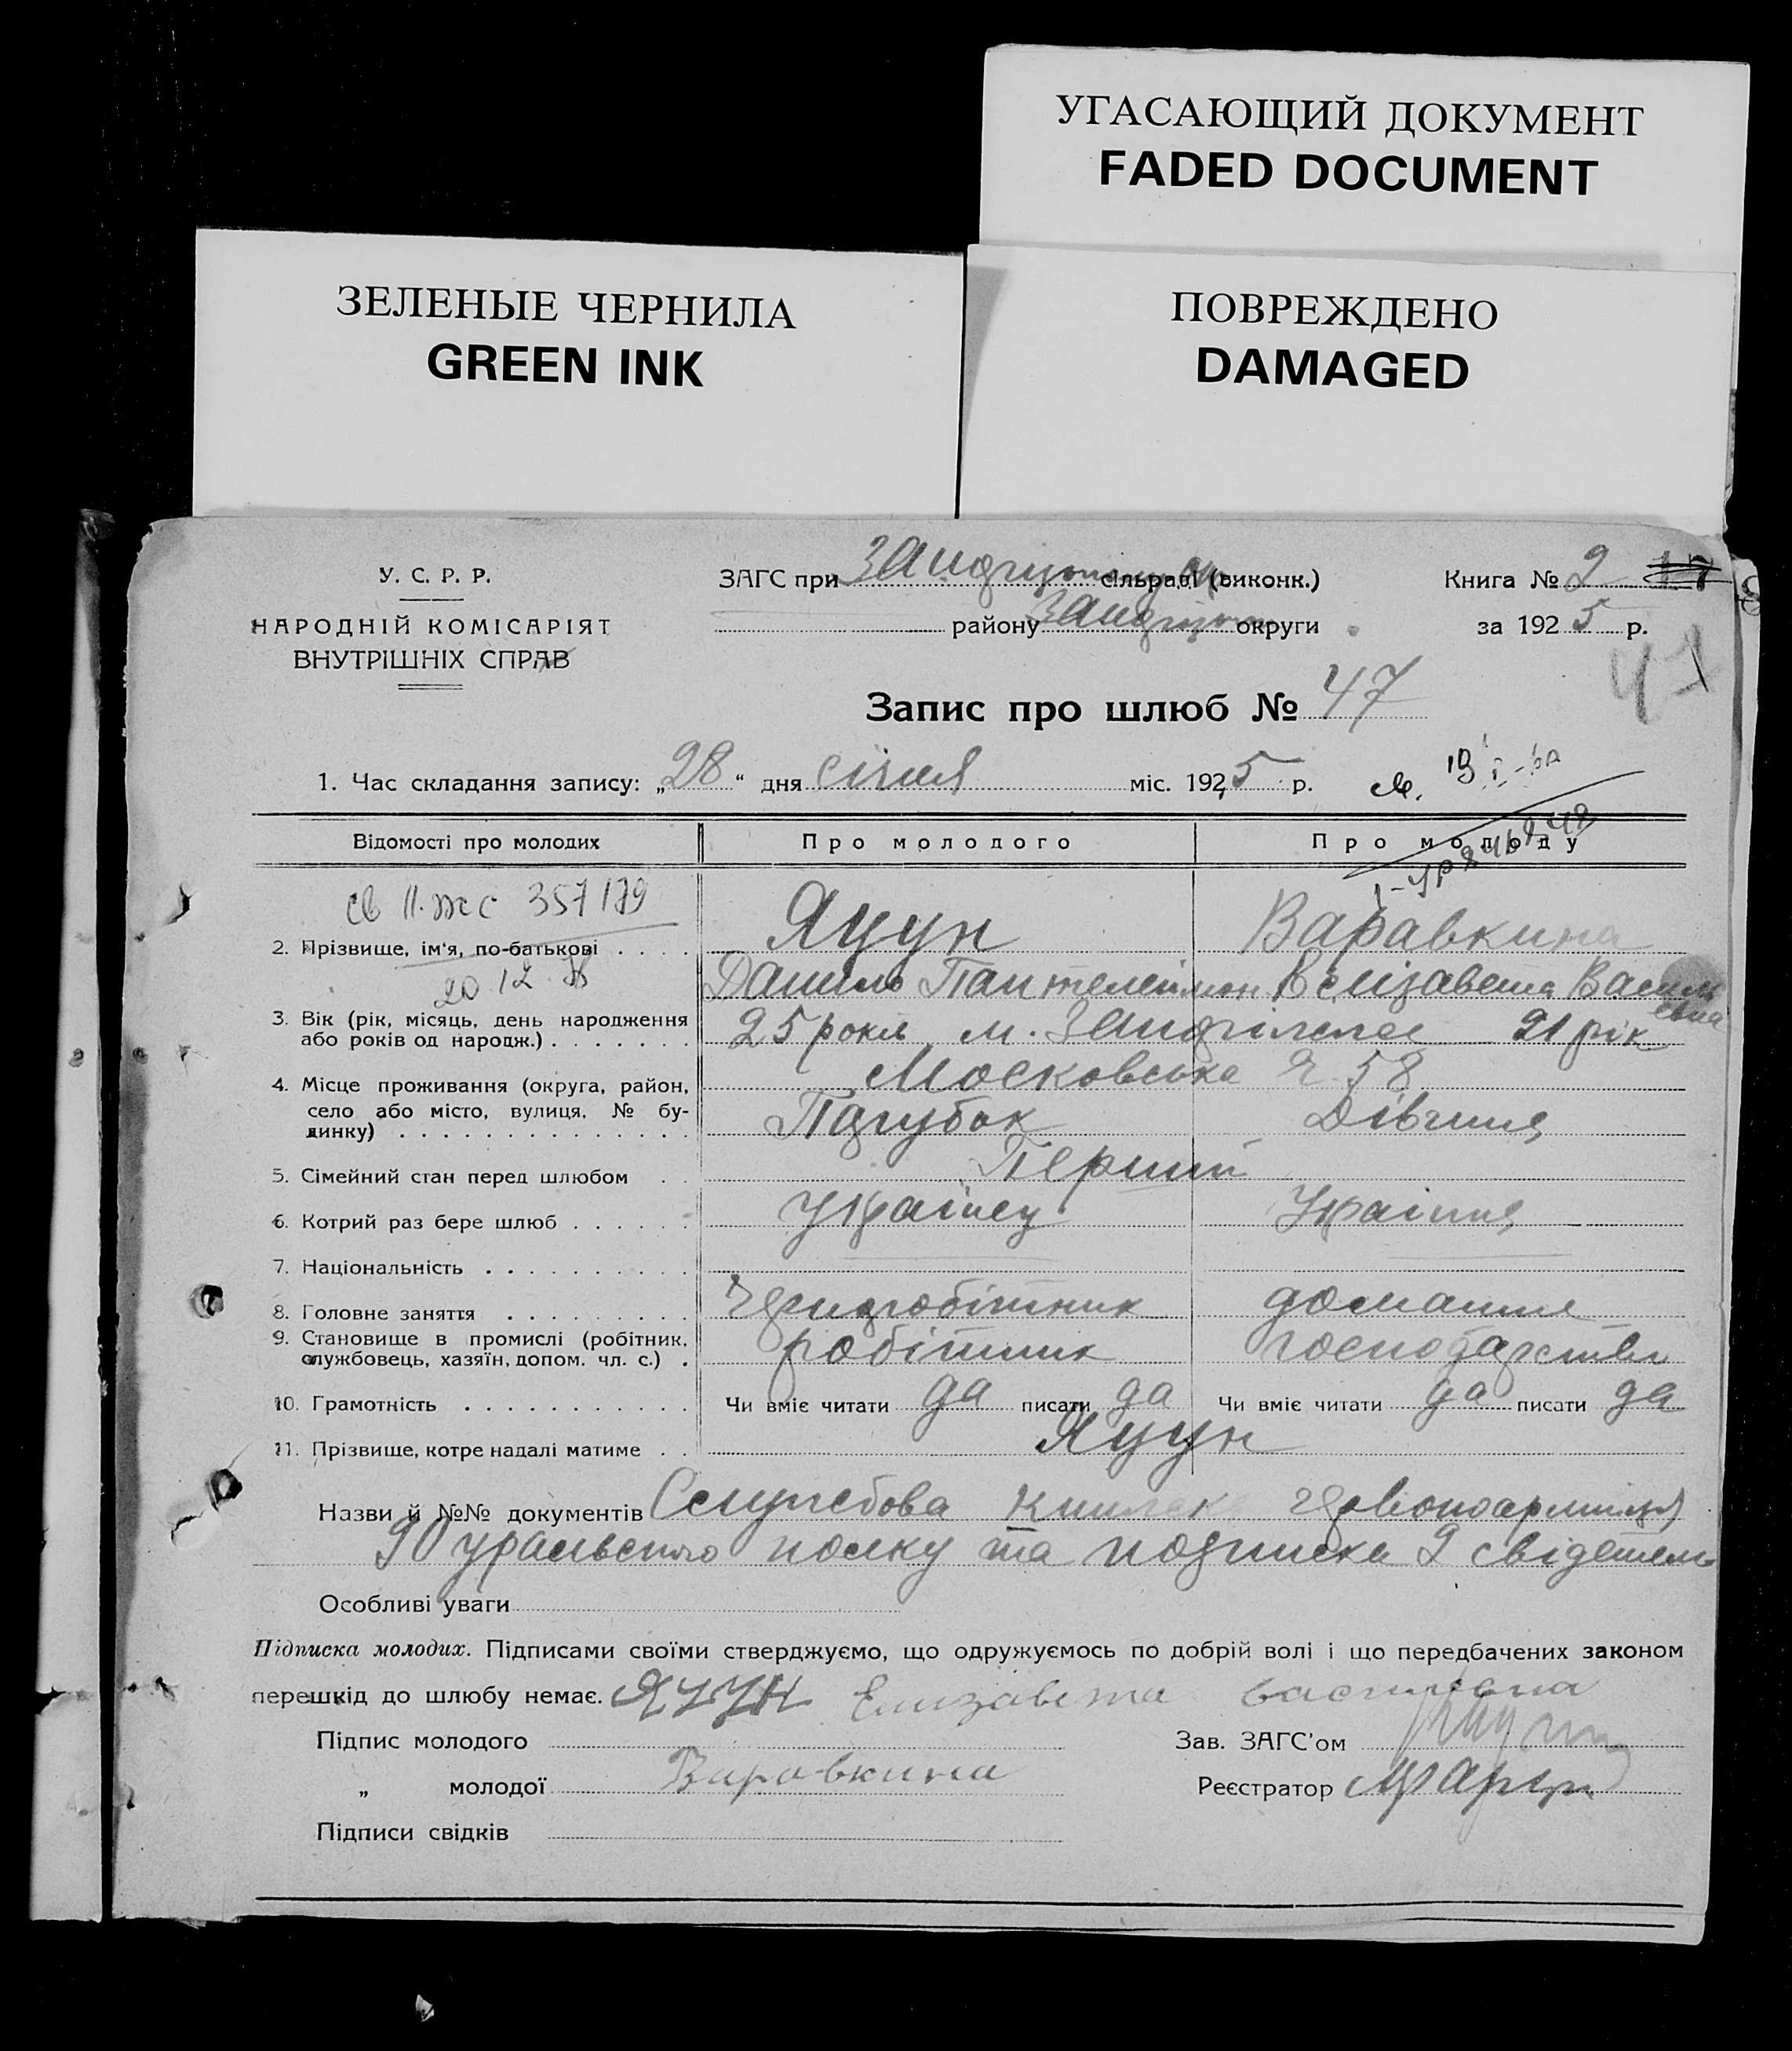 УГАСАЮЩИЙ ДОКУМЕНТ
FADED DOCUMENT
ЗЕЛЕНЫЕ ЧЕРНИЛА
GREEN INK
ПОВРЕЖДЕНО
DAMAGED
У. С. Р. Р.
НАРОДНІЙ КОМІСАРІЯТ
ВНУТРІШНІХ СПРАВ
ЗАГС при сільраді (виконк.)
району округи
Книга № 2
за 1925 р.
47
Запис про шлюб № 47
1. Час складання запису: „28“ дня січня міс. 1925 р.
Відомості про молодих Про молодого Про молоду
357179
2. Прізвище, ім'я, по-батькові . . . . Яцун Варавкина
20 12
Данило Пантелеймон. Єлізавета Василь
евна
3. Вік (рік, місяць, день народження або років од народж.) . . . . . . . 25 років м. 21 рік
4. Місце проживання (округа, район, село або місто, вулиця, № будинку) . . . . . . . . . . . . . . Московська 58
Парубок Дівчина
5. Сімейний стан перед шлюбом . . Перший
6. Котрий раз бере шлюб . . . . . . Українец Україн
7. Національність . . . . . . . . . .
8. Головне заняття . . . . . . . . . Чорноробітник домашне
9. Становище в промислі (робітник, службовець, хазяїн, допом. чл. с.) . робітник господарство
10. Грамотність . . . . . . . . . . . Чи вміє читати да писати да Чи вміє читати да писати да
11. Прізвище, котре надалі матиме . . Яцун
Назви й №№ документів Служебова книжка червоноармійця
90 уральського полку та подписка 2 свідетель
Особливі уваги
Підписка молодих. Підписами своїми стверджуємо, що одружуємось по добрій волі і що передбачених законом
перешкід до шлюбу немає. ЯЦУН Елизавета Василівна
Підпис молодого Зав. ЗАГС'ом
„ молодої Варавкина Реєстратор
Підписи свідків